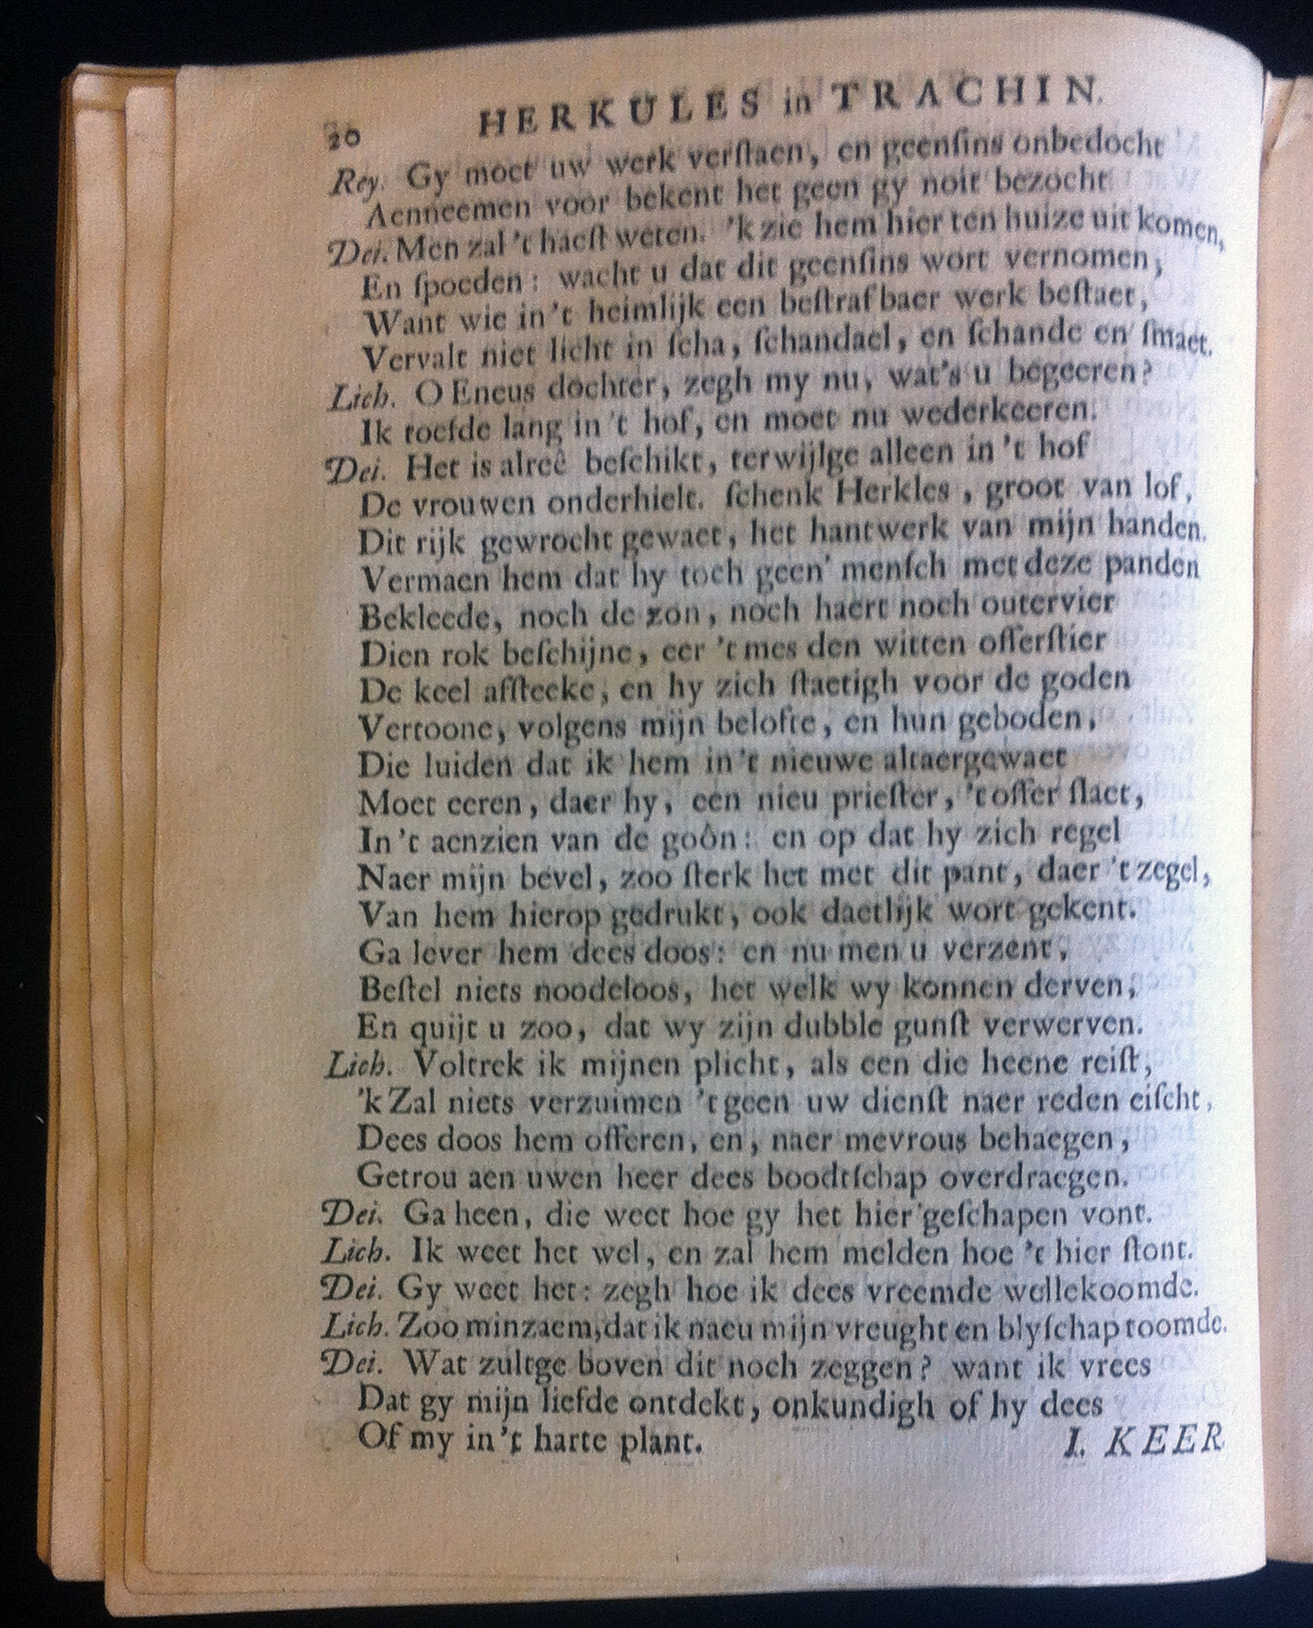 20 HERKULES in TRACHIN.
Rey. Gy moet uw werk verſtaen, en geenſins onbedocht
Aenneemen voor bekent het geen gy noit bezocht
Dei. Men zal 't haeſt weten. 'k zie hem hier ten huize uit komen,
En ſpoeden: wacht u dat dit geenſins wort vernomen,
Want wie in 't heimlijk een beſtrafbaer werk beſtaet,
Vervalt niet licht in ſcha, ſchandael, en ſchande en ſmaet.
Lich. O Eneus dochter, zegh my nu, wat's u begeeren?
Ik toefde lang in 't hof, en moet nu wederkeeren.
Dei. Het is alreê beſchikt, terwijlge alleen in 't hof
De vrouwen onderhielt. ſchenk Herkles, groot van lof,
Dit rijk gewrocht gewaet, het hantwerk van mijn handen.
Vermaen hem dat hy toch geen' menſch met deze panden
Bekleede, noch de zon, noch haert noch outervier
Dien rok beſchijne, eer 't mes den witten offerſtier
De keel afſteeke, en hy zich ſtaetigh voor de goden
Vertoone, volgens mijn belofte, en hun geboden,
Die luiden dat ik hem in 't nieuwe altaergewaet
Moet eeren, daer hy, een nieu prieſter, 't offer ſlaet,
In 't aenzien van de goôn: en op dat hy zich regel
Naer mijn bevel, zoo ſterk het met dit pant, daer 't zegel,
Van hem hierop gedrukt, ook daetlijk wort gekent.
Ga lever hem dees doos: en nu men u verzent,
Beſtel niets noodeloos, het welk wy konnen derven,
En quijt u zoo, dat wy zijn dubble gunſt verwerven.
Lich. Voltrek ik mijnen plicht, als een die heene reiſt,
'k Zal niets verzuimen 't geen uw dienſt naer reden eiſcht,
Dees doos hem offeren, en, naer mevrous behaegen,
Getrou aen uwen heer dees boodtſchap overdraegen.
Dei. Ga heen, die weet hoe gy het hier geſchapen vont.
Lich. Ik weet het wel, en zal hem melden hoe 't hier ſtont.
Dei. Gy weet het: zegh hoe ik dees vreemde wellekoomde.
Lich. Zoo minzaem, dat ik naeu mijn vreught en blyſchap toomde.
Dei. Wat zultge boven dit noch zeggen? want ik vrees
Dat gy mijn liefde ontdekt, onkundigh of hy dees
Of my in 't harte plant. I. KEER